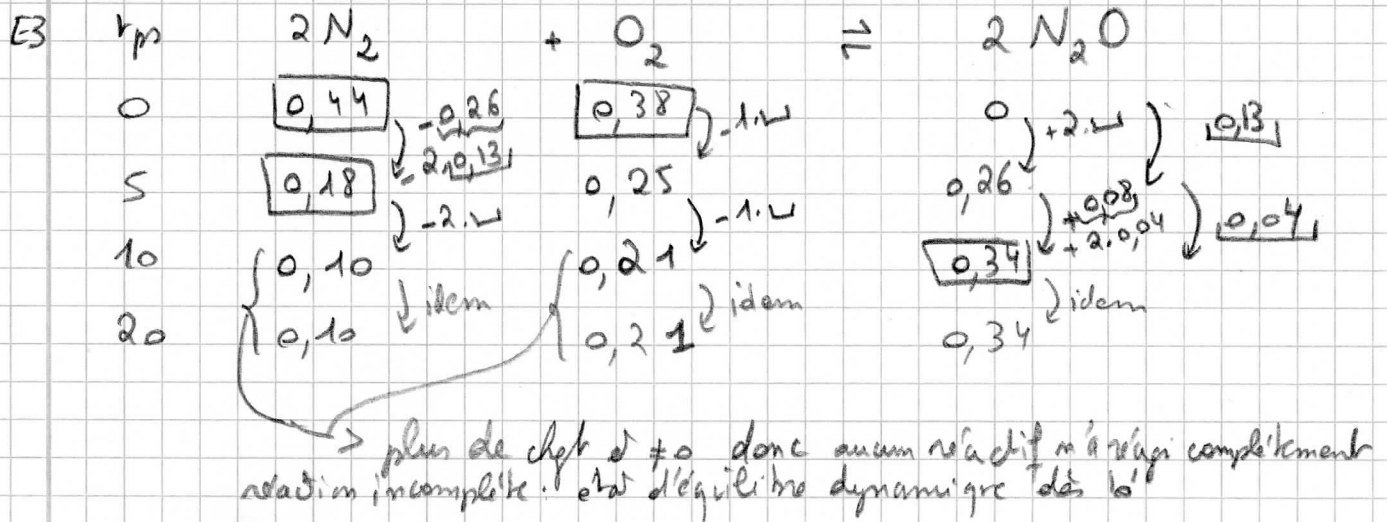 E3 tps 2 N₂ + O₂ ⇌ 2 N₂O
0 0,44 -0,26 0,38 -1.⌴ 0 +2.⌴ 0,13
-2.0,13
5 0,18 0,25 0,26 +0,08 0,04
-2.⌴ -1.⌴ +2.0,04
10 0,10 0,21 0,34
idem idem idem
20 0,10 0,21 0,34
plus de chgt et ≠0 donc aucun réactif n'a réagi complètement
réaction incomplète. état d'équilibre dynamique dès